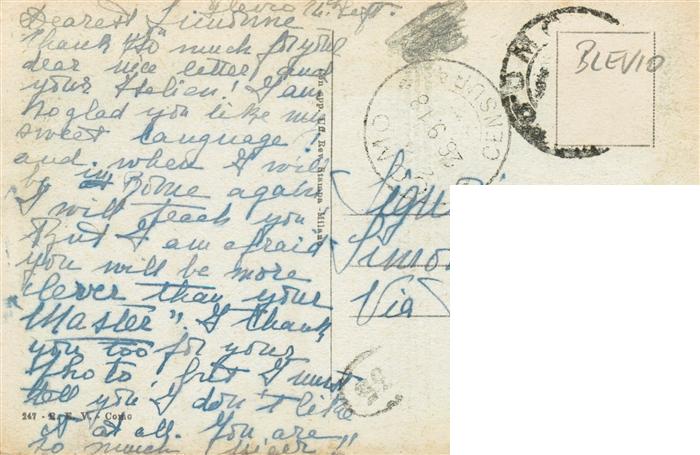 Blevio 24 Sept.
Dearest Simonne
Thank "so" much for your
dear nice letter, and
your Italien! I am
so glad you like my
sweet language;
and when I will
be in Rome again
I will teach you
But I am afraid
you will be more
clever than your
"Master". I thank
you too for your
Pho to, but I must
tell you I don't like
it at all. You are
so much nicer!!
247 - R. E. V. - Como
Rev. Stampa - Milano
COMO
CENSURA
26.9.18
COMO
BLEVIO
Sign
Simon
Via